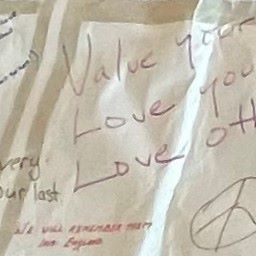 Value your
Love you
Love oth
very
our last
We will remember them